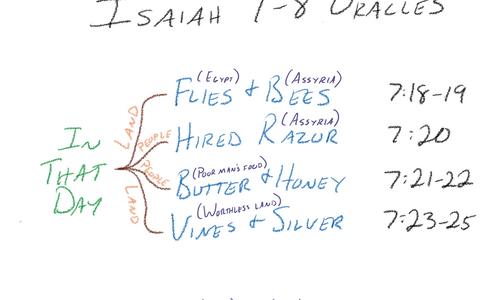 ISAIAH 7-8 ORACLES
(EGYPT) (ASSYRIA)
FLIES & BEES 7:18-19
LAND
(ASSYRIA)
PEOPLE
HIRED RAZUR 7:20
IN
THAT
DAY
(POOR MAN'S FOOD)
PEOPLE
BUTTER & HONEY 7:21-22
(WORTHLESS LAND)
LAND
VINES & SILVER 7:23-25